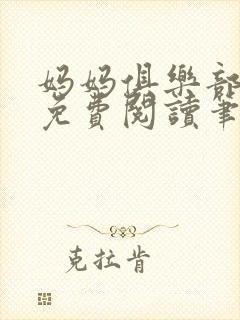 媽媽俱樂部
免費閱讀筆
克拉肯